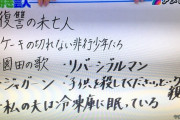 復讐の未亡人
ケーキの切れない非行少年たち
園田の歌・リバーシブルマン
ジャガーン・子供を殺してくださいという親
私の夫は冷凍庫に眠っている